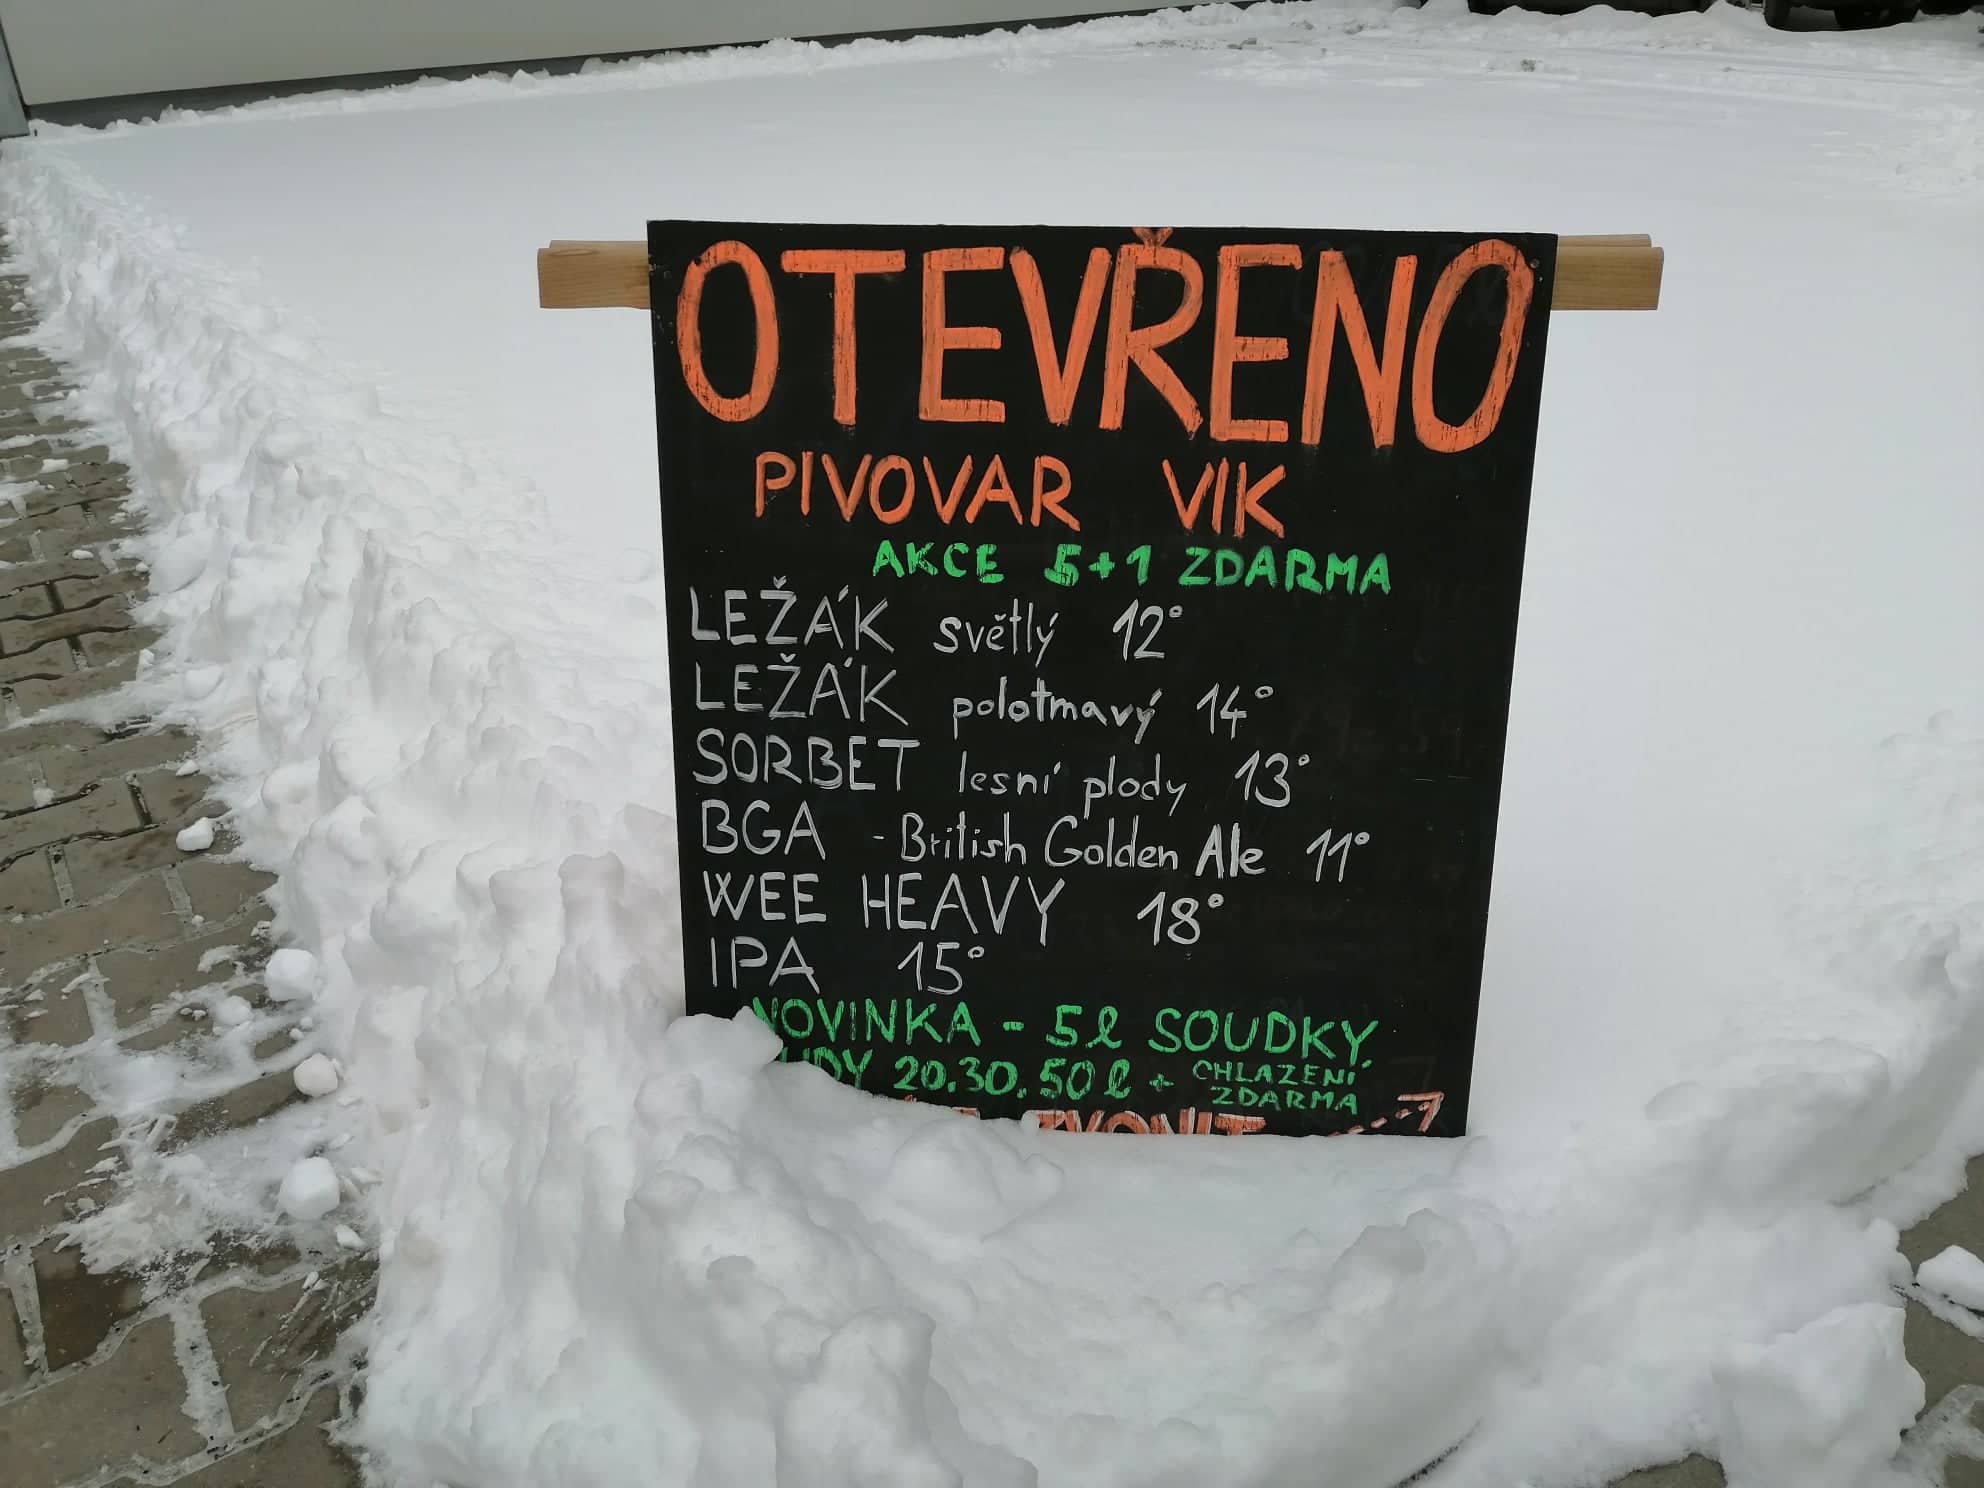 OTEVŘENO
PIVOVAR VIK
AKCE 5+1 ZDARMA
LEŽÁK světlý 12°
LEŽÁK polotmavý 14°
SORBET lesní plody 13°
BGA - British Golden Ale 11°
WEE HEAVY 18°
IPA 15°
NOVINKA - 5l SOUDKY
20.30.50l + CHLAZENÍ ZDARMA
ZVONIT